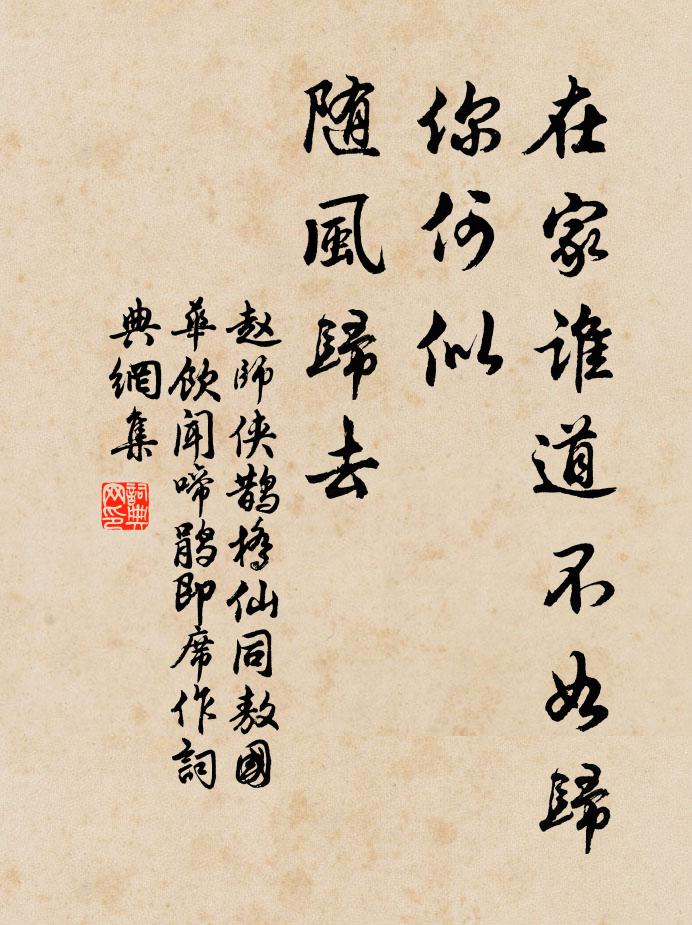 在家誰道不如歸
你何似
随風歸去
赵師侠鵲橋仙同敖國
華飲聞啼鵑即席作詞
典網集
詞典
网印